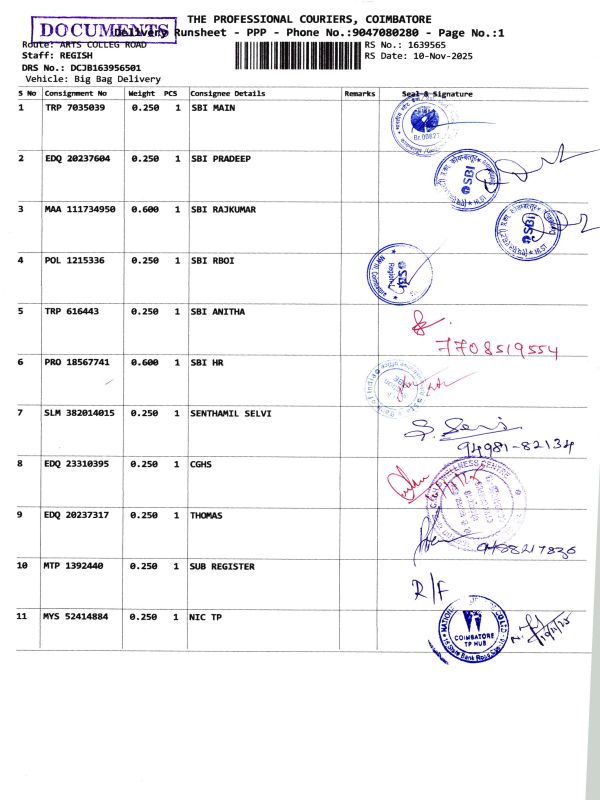 THE PROFESSIONAL COURIERS, COIMBATORE
DOCUMENTS
Delivery Runsheet - PPP - Phone No.:9047080280 - Page No.:1
Route: ARTS COLLEG ROAD RS No.: 1639565
Staff: REGISH RS Date: 10-Nov-2025
DRS No.: DCJB163956501
Vehicle: Big Bag Delivery
S No Consignment No Weight PCS Consignee Details Remarks Seal & Signature
1 TRP 7035039 0.250 1 SBI MAIN
2 EDQ 20237604 0.250 1 SBI PRADEEP
3 MAA 111734950 0.600 1 SBI RAJKUMAR
4 POL 1215336 0.250 1 SBI RBOI
5 TRP 616443 0.250 1 SBI ANITHA
7708519554
6 PRO 18567741 0.600 1 SBI HR
7 SLM 382014015 0.250 1 SENTHAMIL SELVI
94981-82134
8 EDQ 23310395 0.250 1 CGHS
WELLNESS CENTRE
9 EDQ 20237317 0.250 1 THOMAS
10 MTP 1392440 0.250 1 SUB REGISTER
R/F
11 MYS 52414884 0.250 1 NIC TP
COIMBATORE
TP HUB